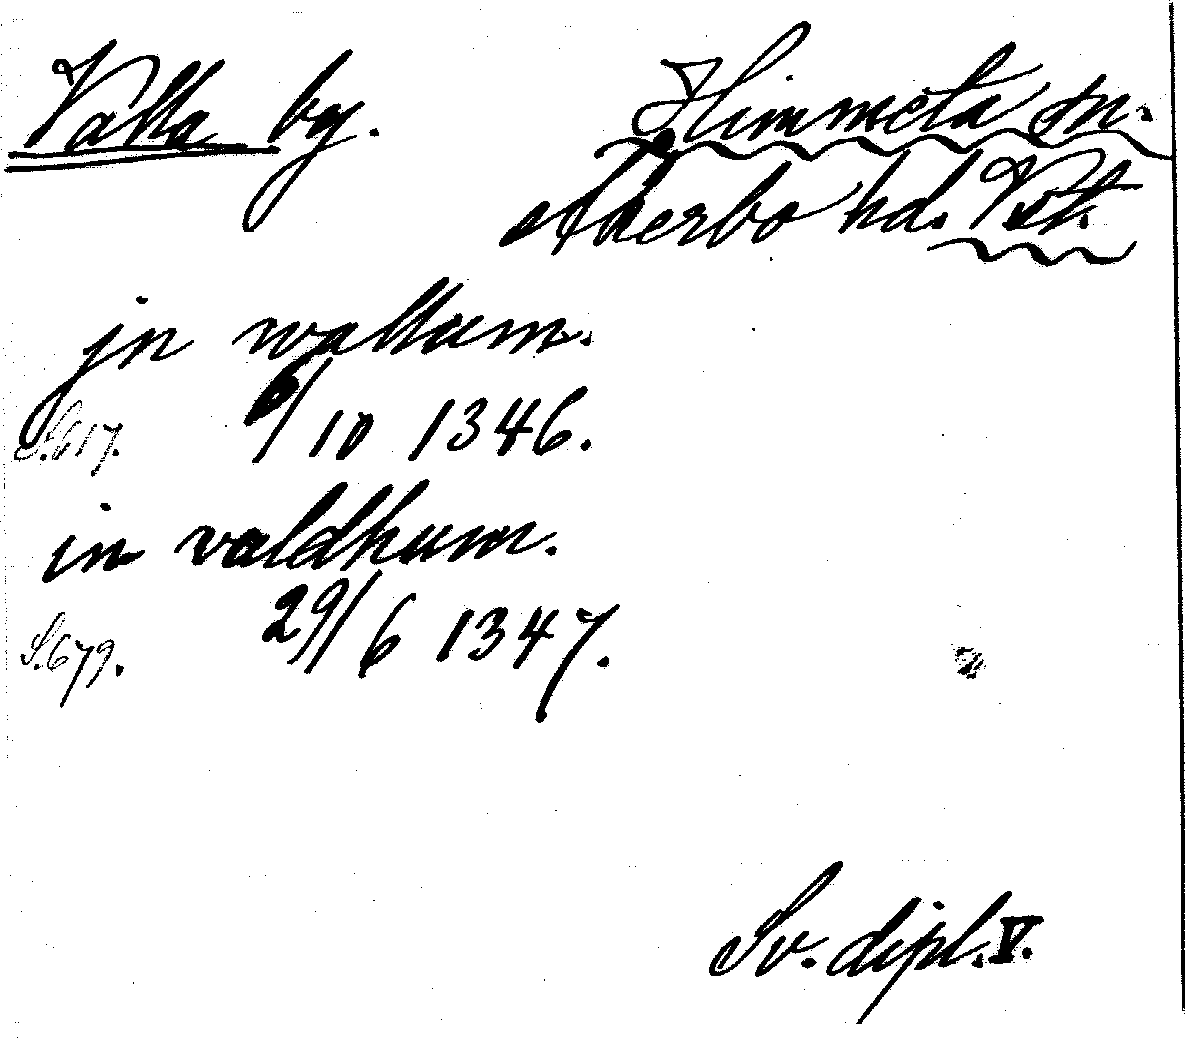 Valla by.
Himmeta sn.
Åkerbo hd. Vst.
jn wallum.
S.617. 6/10 1346.
in valdhum.
S.679. 29/6 1347.
Sv. dipl. V.